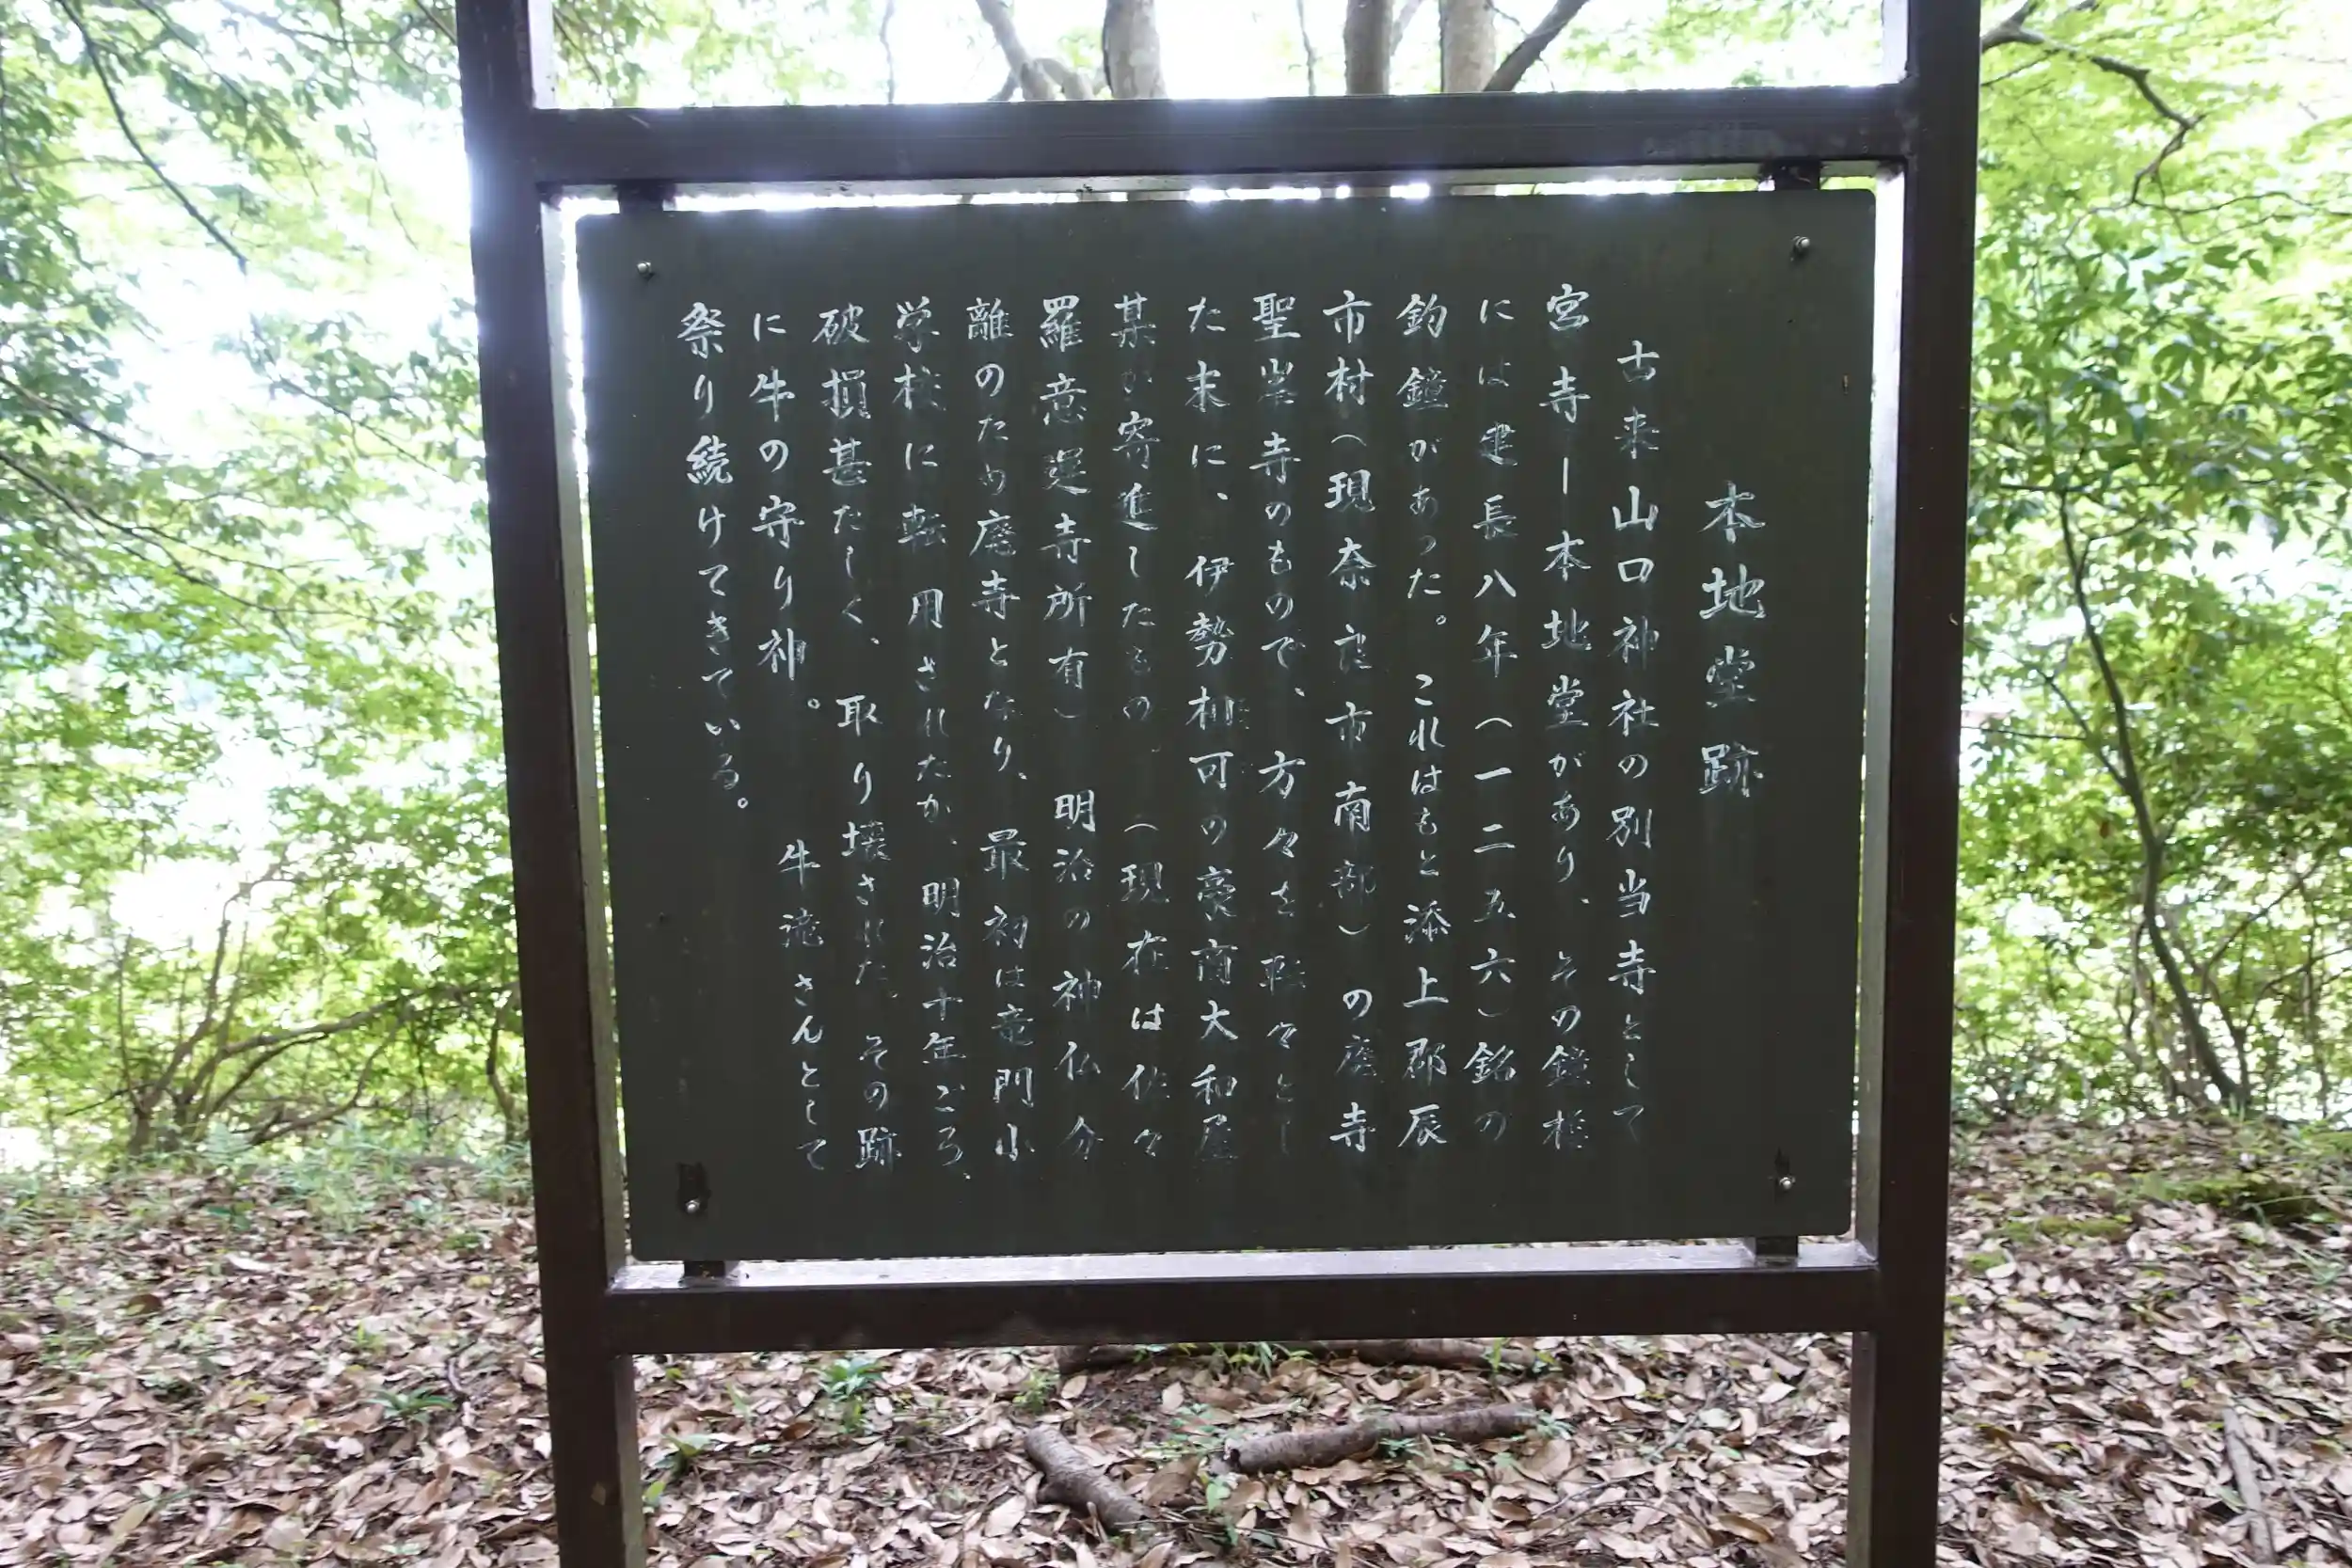 本地堂跡
古来山口神社の別当寺として
宮寺ー本地堂があり、その鐘楼
には建長八年（一二五六）銘の
釣鐘があった。これはもと添上郡辰
市村（現奈良市南部）の廃寺
聖峯寺のもので、方々を転々とし
た末に、伊勢相可の豪商大和屋
某が寄進したもの。（現在は佐々
羅意運寺所有）明治の神仏分
離のため廃寺となり、最初は竜門小
学校に転用されたが、明治十年ごろ、
破損甚だしく、取り壊された。その跡
に牛の守り神。牛滝さんとして
祭り続けてきている。